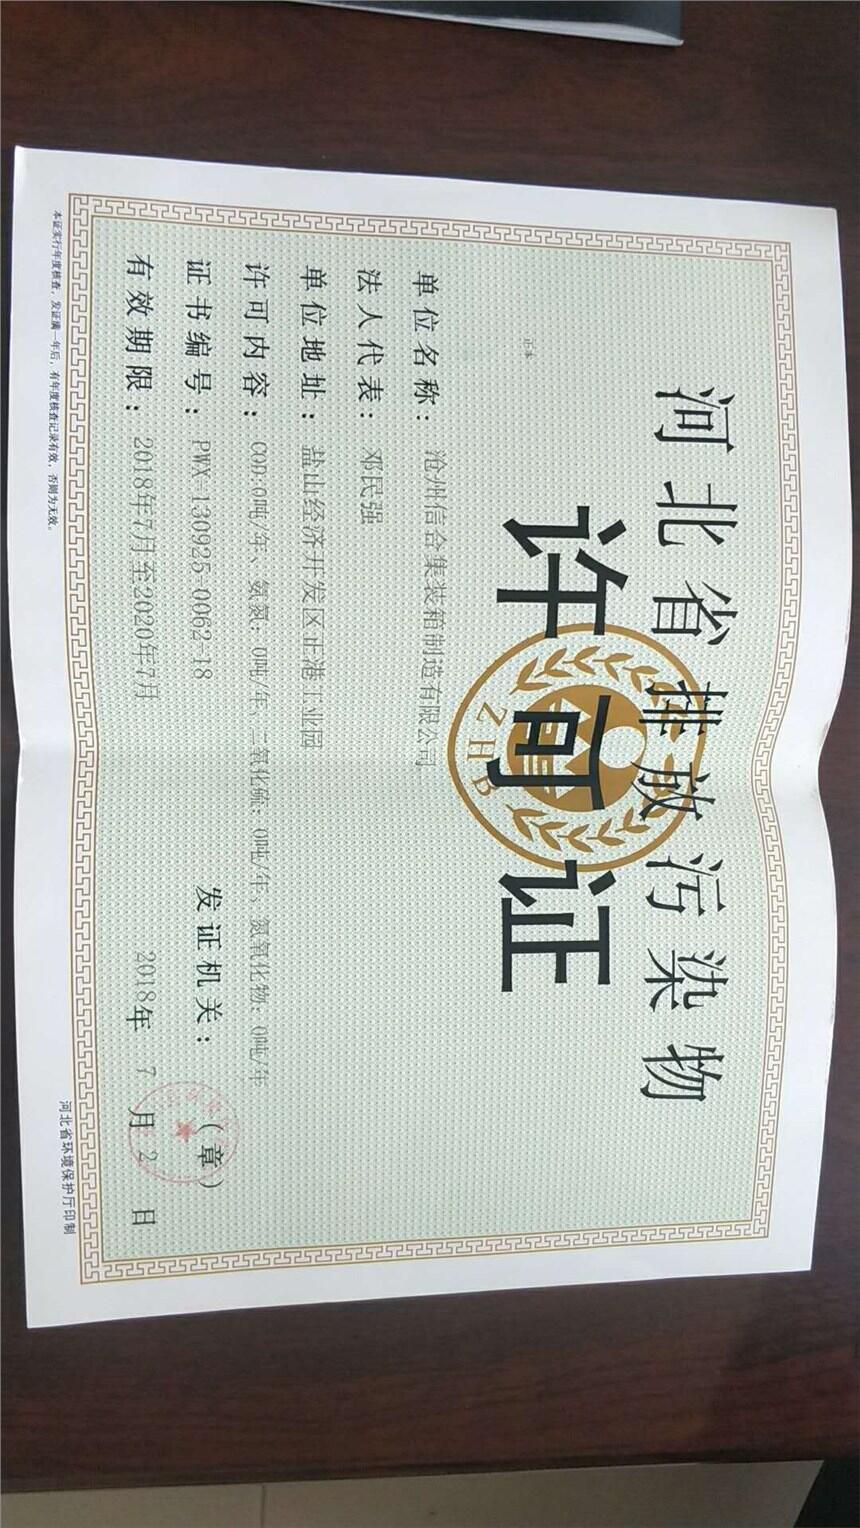 河北省排放污染物
许可证
正本
单位名称：沧州信合集装箱制造有限公司
法人代表：邓民强
单位地址：盐山经济开发区正港工业园
许可内容：COD:0吨/年、氨氮：0吨/年 二氧化硫：0吨/年、氮氧化物：0吨/年
证书编号：PWX-130925-0062-18
发证机关：（章）
有效期限：2018年7月至2020年7月
2018年 7 月 2 日
本证实行年度核查，发证满一年后，有年度核查记录有效，否则为无效。
河北省环境保护厅印制
ZHB